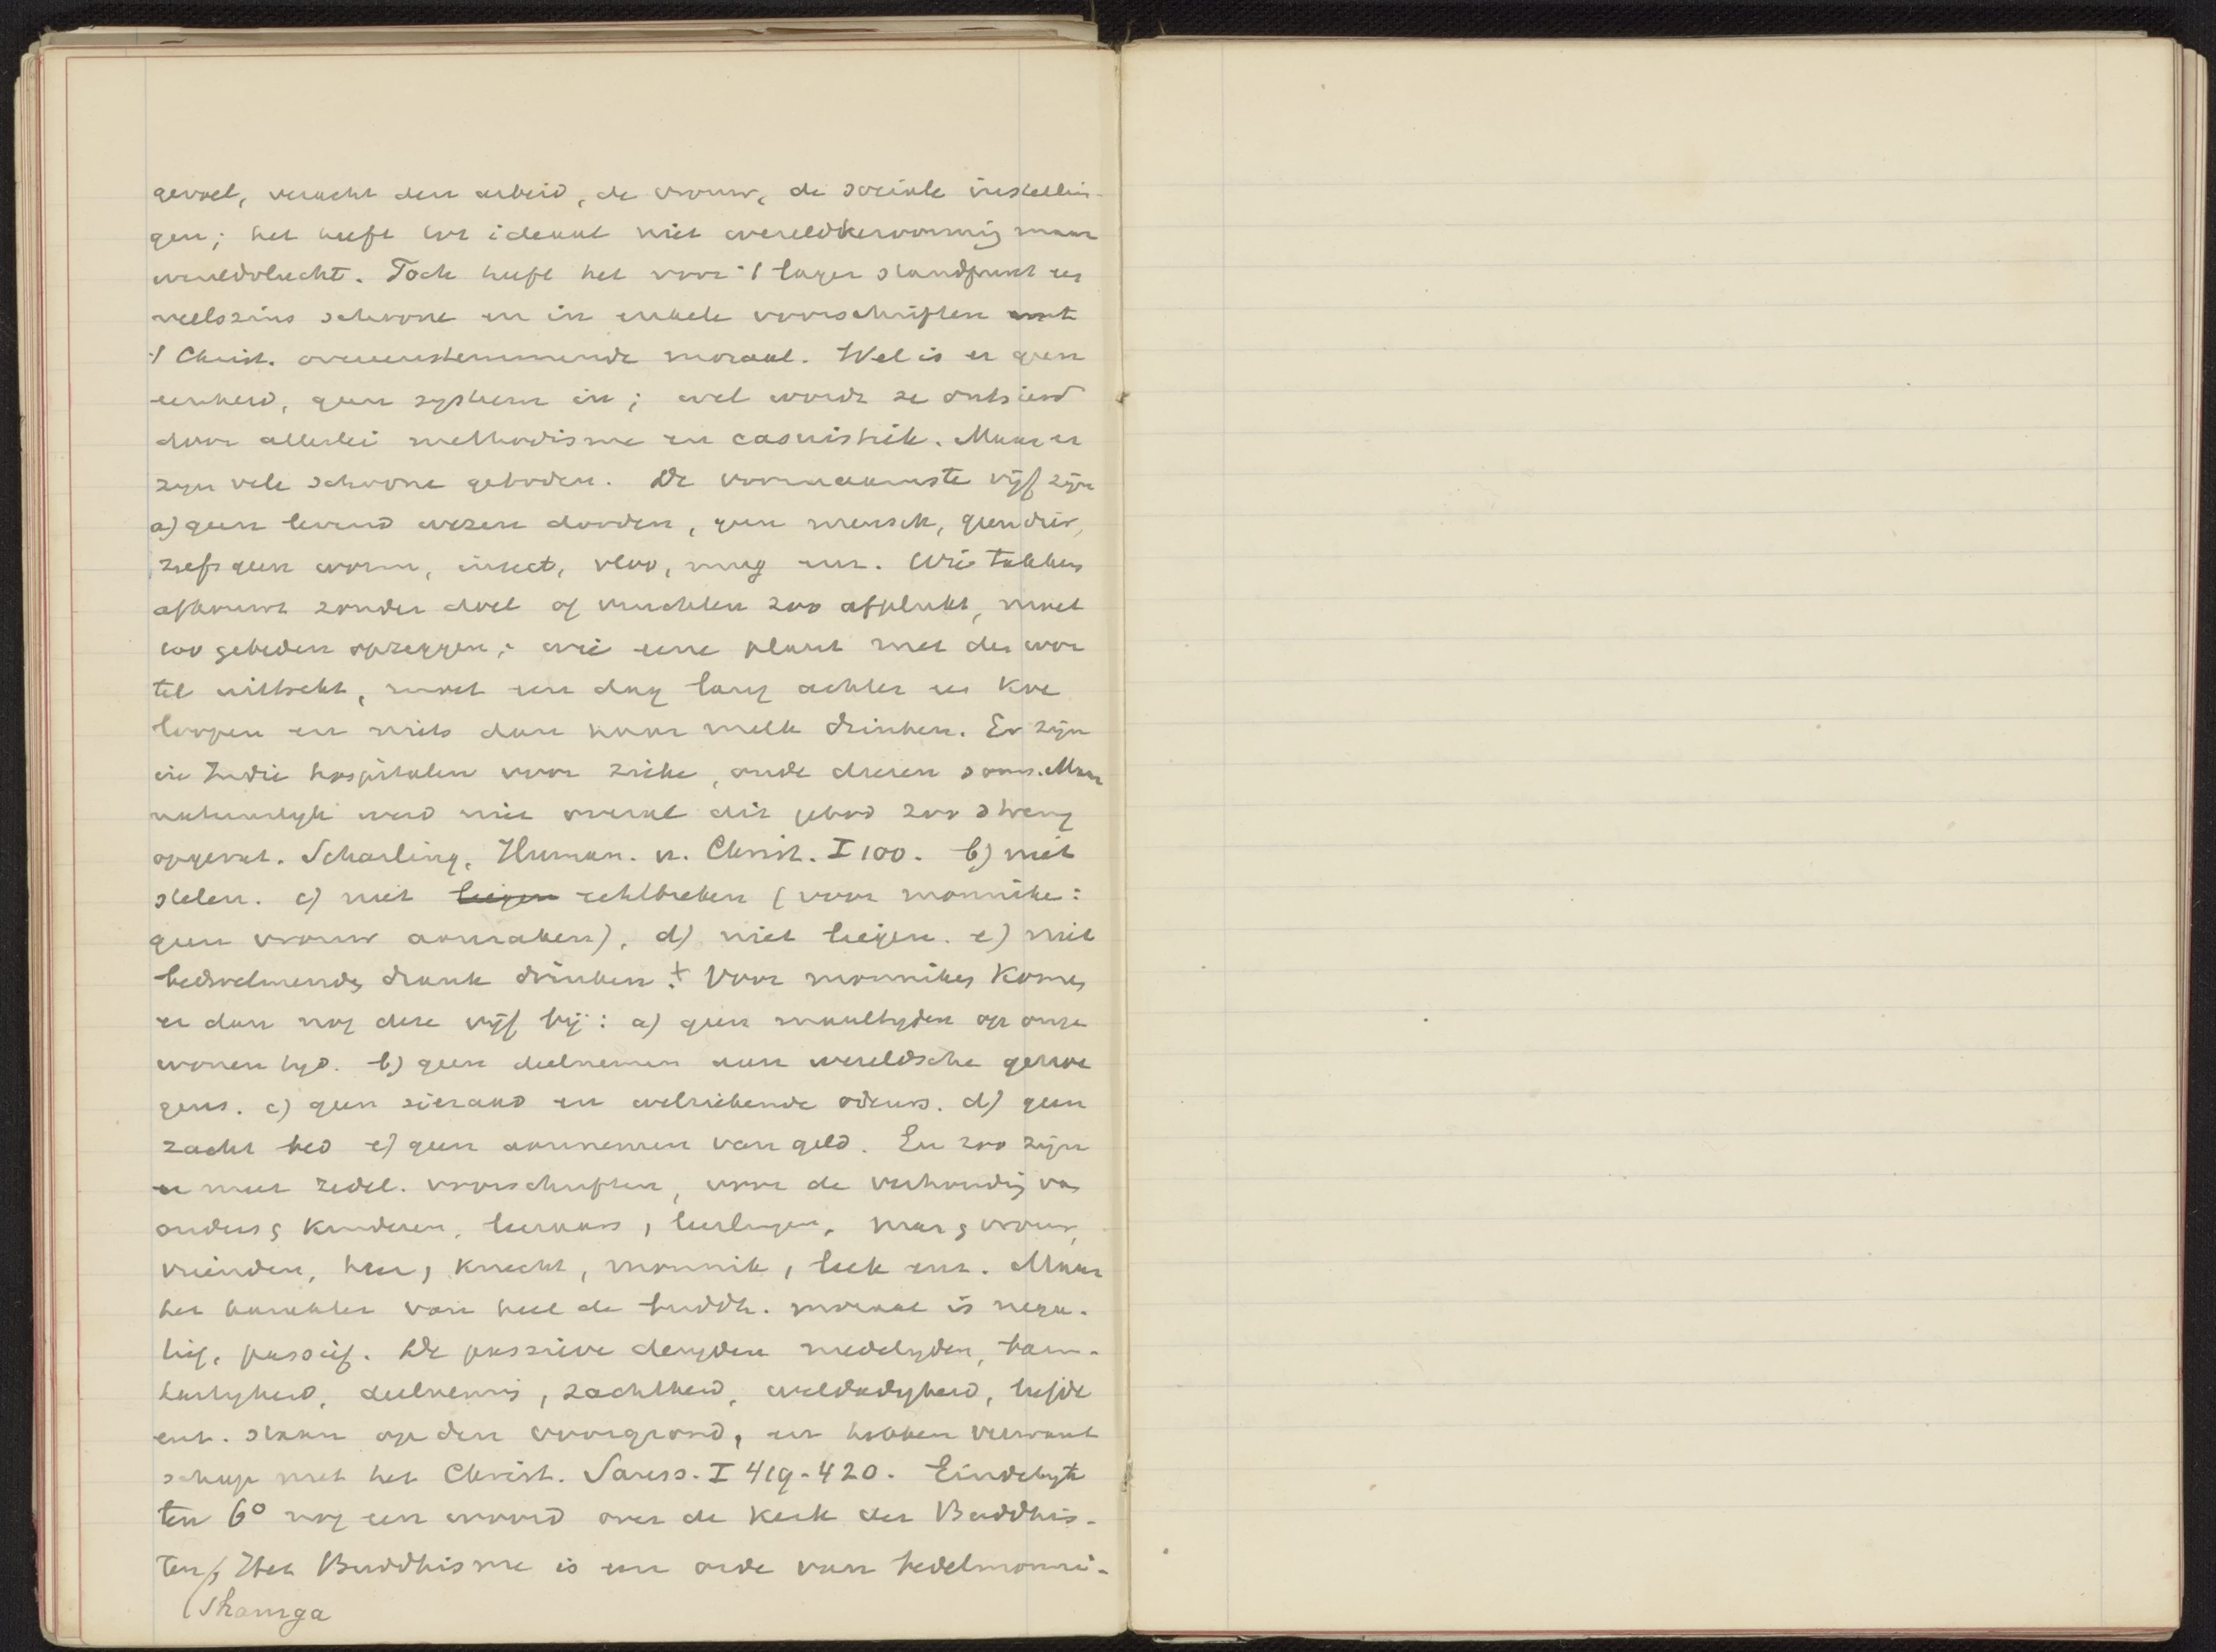 gevoel, veracht den arbeid, de vrouw, de sociale instellin-
gen; het heeft tot ideaal niet wereldhervorming maar
wereldvlucht. Toch heeft het voor 't lager standpunt een
veelszins schoone en in enkele voorschriften met
't Christ. overeenstemmende moraal. Wel is er geen
eenheid, geen systeem in; wel wordt ze ontsierd
door allerlei methodisme en casuistiek. Maar er
zijn vele schoone geboden. De voornaamste vijf zijn
a) geen levend wezen dooden, geen mensch, geen dier,
zelfs geen worm, insect, vloo, mug enz. Wie takken
afhouwt zonder doel of vruchten zoo afplukt, moet
100 gebeden opzeggen; wie eene plant met den wor
tel uittrekt, moet een dag lang achter een koe
loopen en niets dan haar melk drinken. Er zijn
in Indie hospitalen voor zieke, oude dieren soms. Maar
natuurlyk werd niet overal dit gebod zoo streng
opgevat. Scharling, Human. u. Christ. I 100. b) niet
stelen. c) niet liegen echtbreken (voor monniken:
geen vrouw aanraken), d) niet liegen. e) niet
bedwelmende drank drinken. + Voor monniken komen
er dan nog deze vijf bij: a) geen maaltyden op onge
wonen tyd. b) geen deelnemen aan wereldsche genoe
gens. c) geen sieraad en welriekende odeurs. d) geen
zacht bed e) geen aannemen van geld. En zoo zijn
er meer zedel. voorschriften, voor de verhouding van
ouders, kinderen, leeraars, leerlingen, man, vrouw,
vrienden, heer, knecht, monnik, leek enz. Maar
het karakter van heel de buddh. moraal is nega-
tief, passief. De passieve deugden medelyden, barm-
hartigheid, deelneming, zachtheid, weldadigheid, liefde
enz. staan op den voorgrond, en hebben verwant
schap met het Christ. Sauss. I 419-420. Eindelyk
ten 6° nog een woord over de kerk der Buddhis-
ten, Het Buddhisme is een orde van bedelmonni-